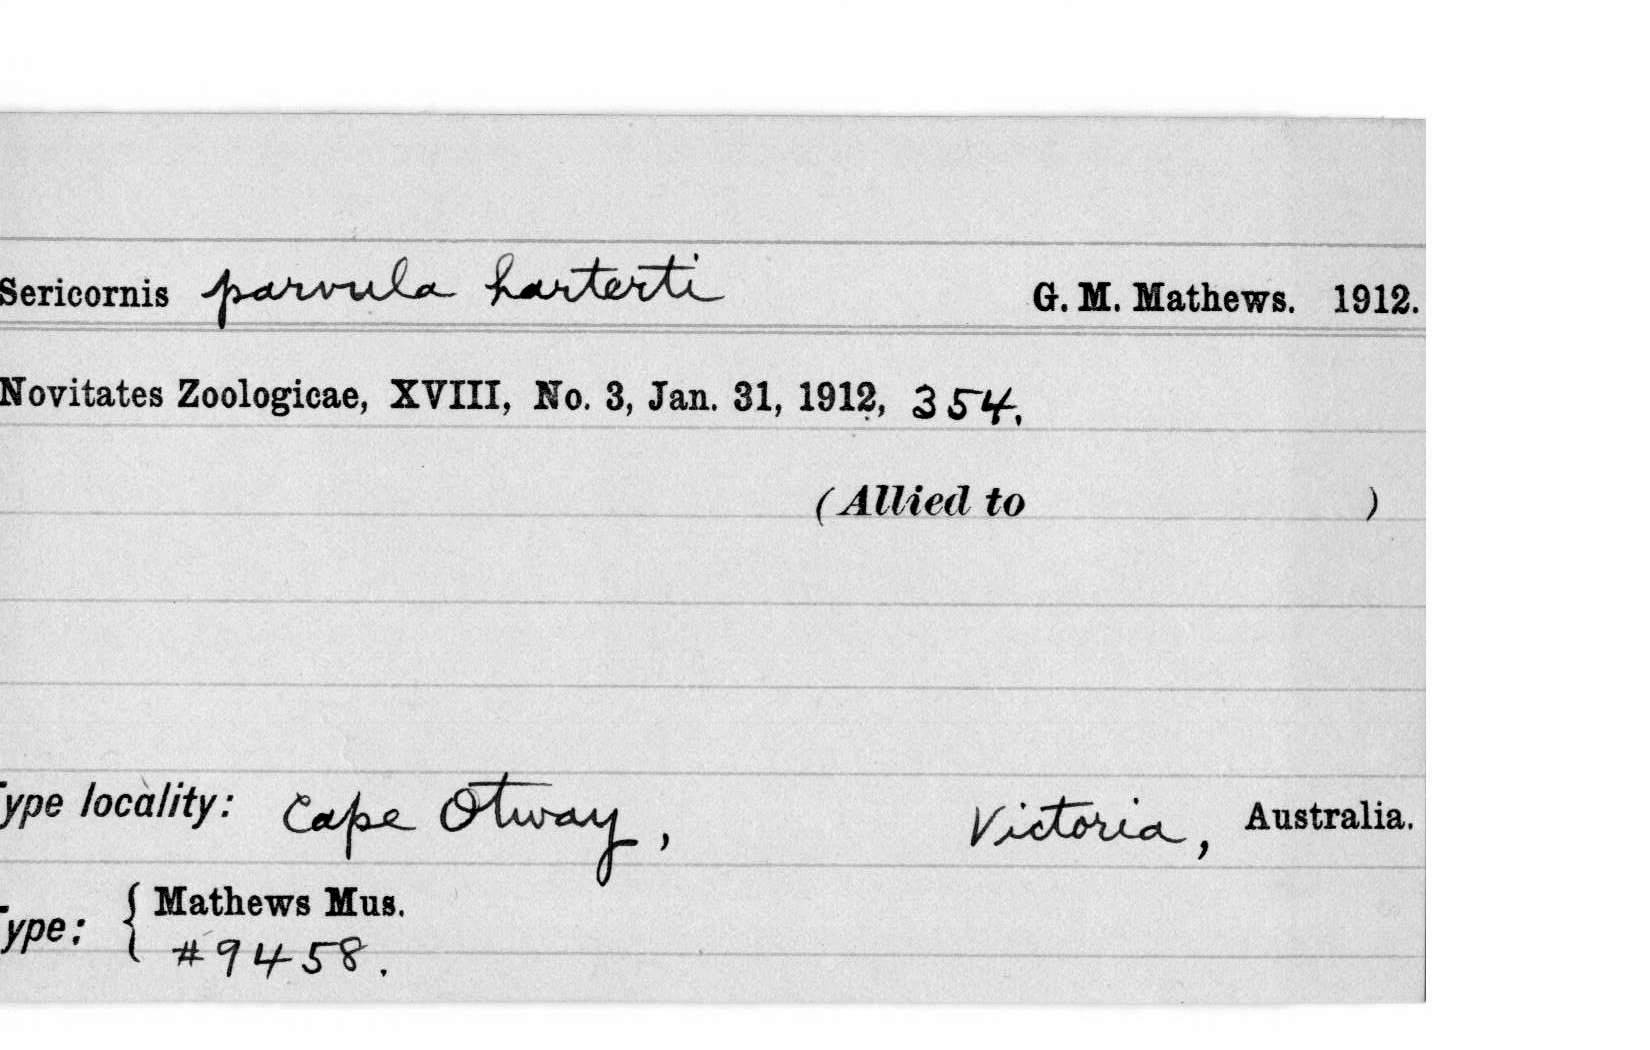 Sericornis parvula harterti G. M. Mathews. 1912.
Novitates Zoologicae, XVIII, No. 3, Jan. 31, 1912, 354.
(Allied to )
Type locality: Cape Otway, Victoria, Australia.
Type: { Mathews Mus.
#9458.